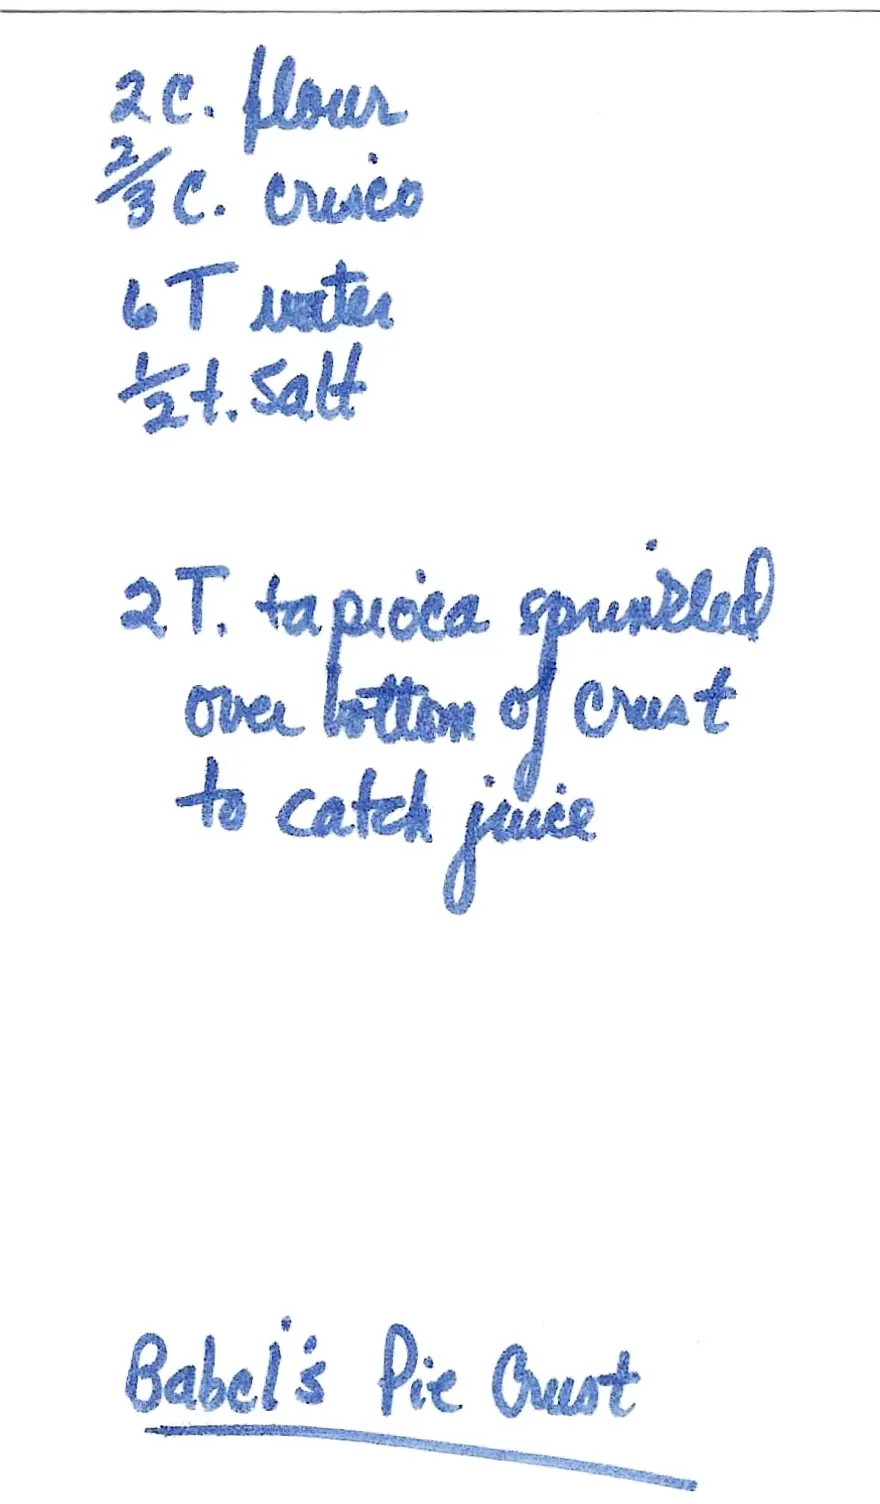 2 C. flour
2/3 C. crisco
6 T water
1/2 t. Salt
2 T. tapioca sprinkled
over bottom of crust
to catch juice
Babci's Pie Crust